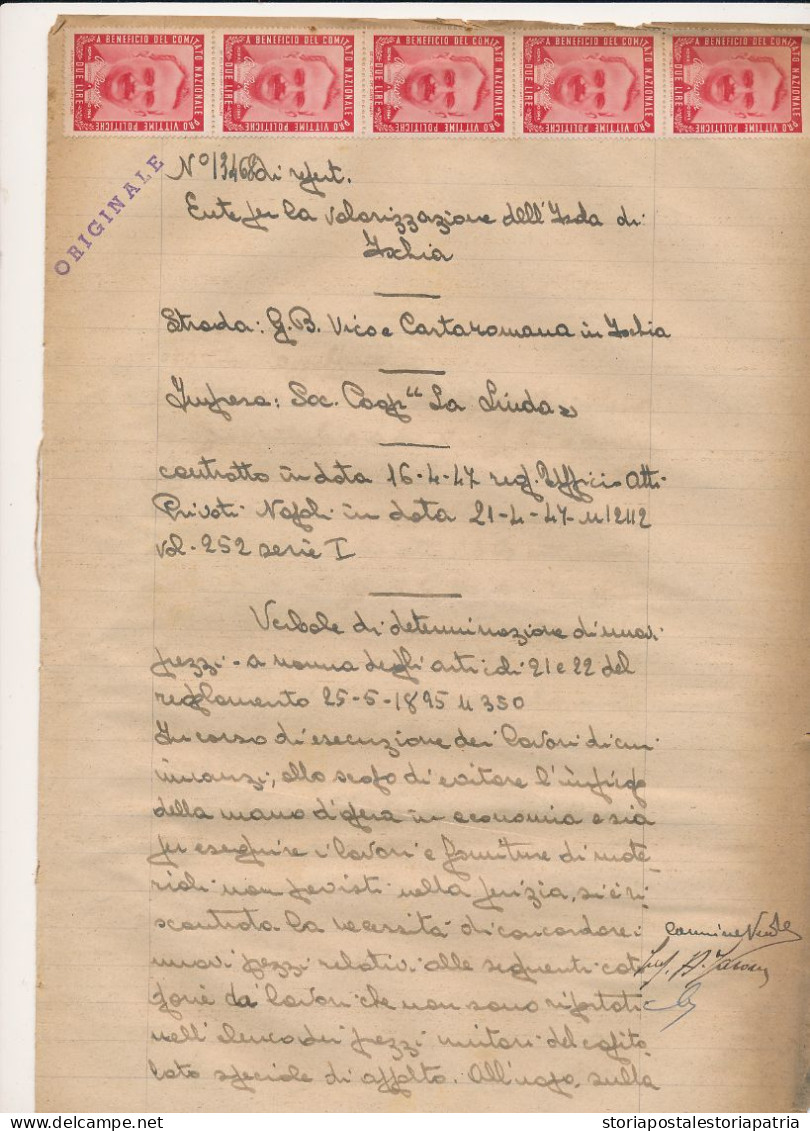 A BENEFICIO DEL COMITATO NAZIONALE PRO VITTIME POLITICHE DUE LIRE
A BENEFICIO DEL COMITATO NAZIONALE PRO VITTIME POLITICHE DUE LIRE
A BENEFICIO DEL COMITATO NAZIONALE PRO VITTIME POLITICHE DUE LIRE
A BENEFICIO DEL COMITATO NAZIONALE PRO VITTIME POLITICHE DUE LIRE
A BENEFICIO DEL COMITATO NAZIONALE PRO VITTIME POLITICHE DUE LIRE
ORIGINALE
N° 13468 di repert.
Ente per la valorizzazione dell'Isola di
Ischia
Strada: G.B. Vico e Cartaromana in Ischia
Impresa: Soc. Coop "La
contratto in data 16-4-47 reg. Ufficio Atti
Privati Napoli in data 21-4-47 n 12112
vol. 252 serie I
Verbale di determinazione di nuovi
prezzi - a norma degli articoli 21 e 22 del
reglamento 25-5-1895 n 350
In corso di esecuzione dei lavori di cui
innanzi, allo scopo di evitare l'impiego
della mano d'opera in economia e sia
per eseguire i lavori e forniture di mate
riali non previsti nella perizia, si è ri
scontrata la necessità di concordare i
nuovi prezzi relativi alle seguenti cat
gorie da lavori che non sono riportati
nell'elenco dei prezzi unitari del capito
lato speciale di appalto. All'uopo, sulla
storiapostalestoriapatria